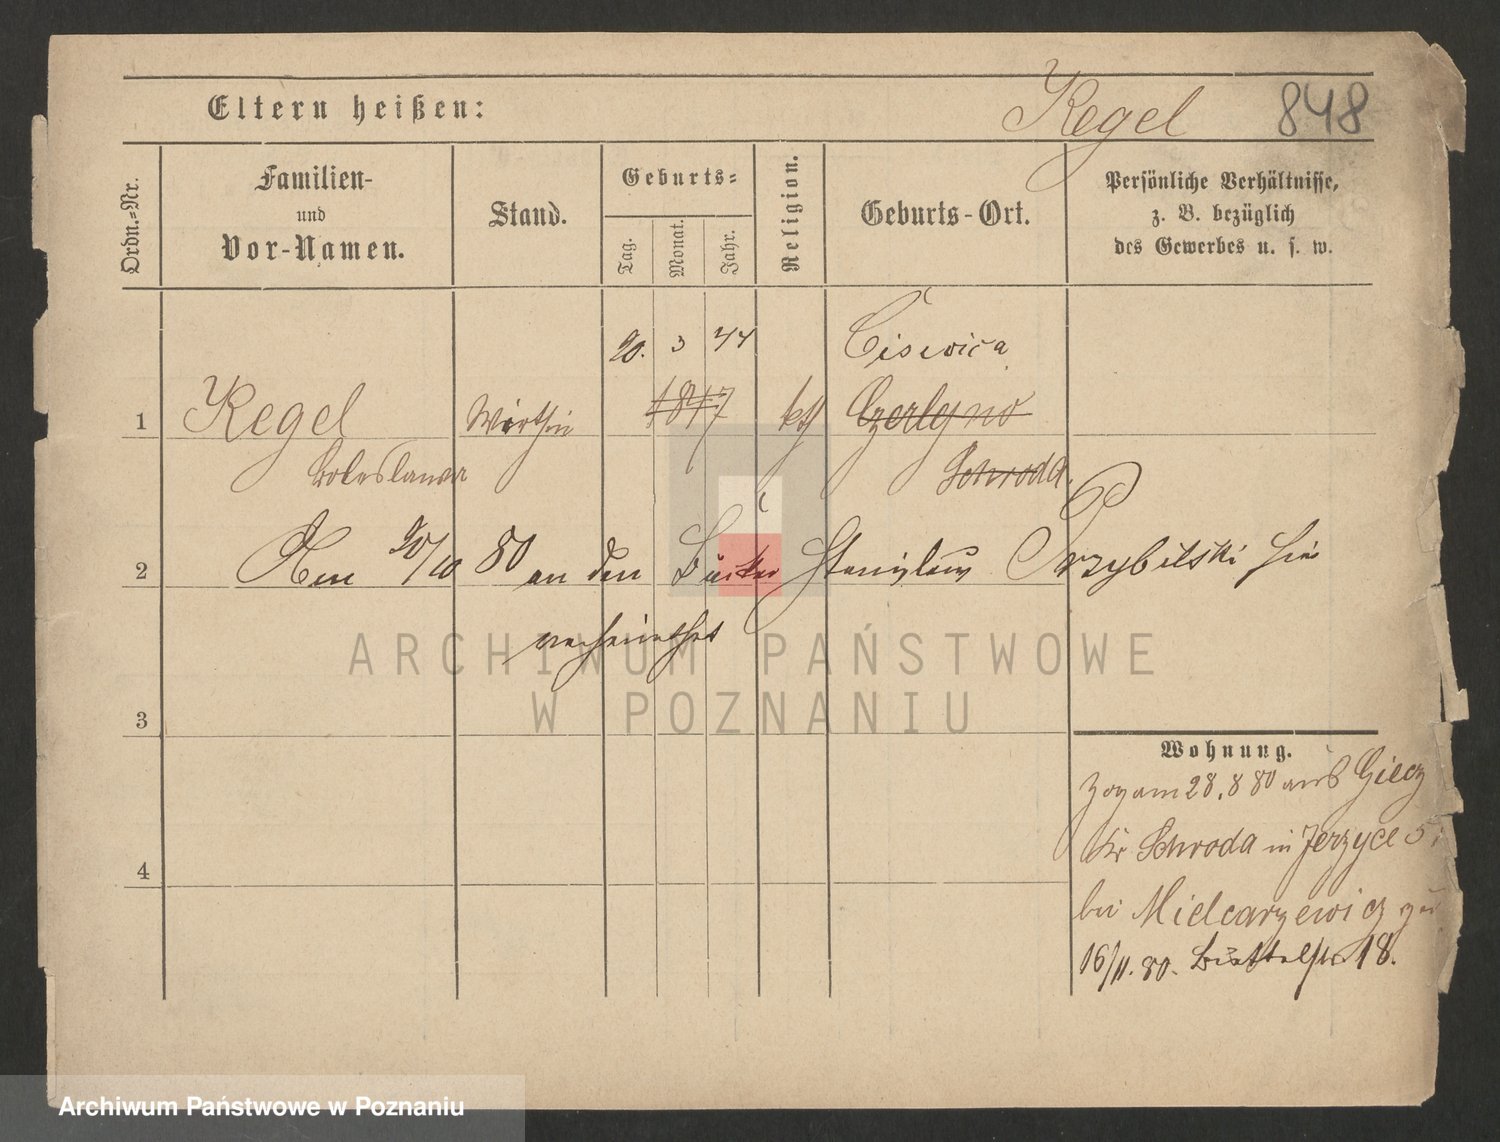 Eltern heißen:
Kegel 848
Ordn.=Nr.
Familien-
und
Vor-Namen.
Stand.
Geburts=
Tag.
Monat.
Jahr.
Religion.
Geburts-Ort.
Persönliche Verhältnisse,
z. B. bezüglich
des Gewerbes u. s. w.
20. 3 44 Cisewica
1 Kegel Wirthin 1847 kth Czerleyno
Boleslawa Schroda.
2 Am 20/10 80 an den Stanislaus Przybilski hier
verheirathet
3
4
Wohnung.
Zog am 28.8 80 aus Giecz
Kr Schroda in Jerzyce 5
bei Mielcarzewicz zu
16/11. 80. Büttelstr 18.
ARCHIWUM PAŃSTWOWE
W POZNANIU
Archiwum Państwowe w Poznaniu